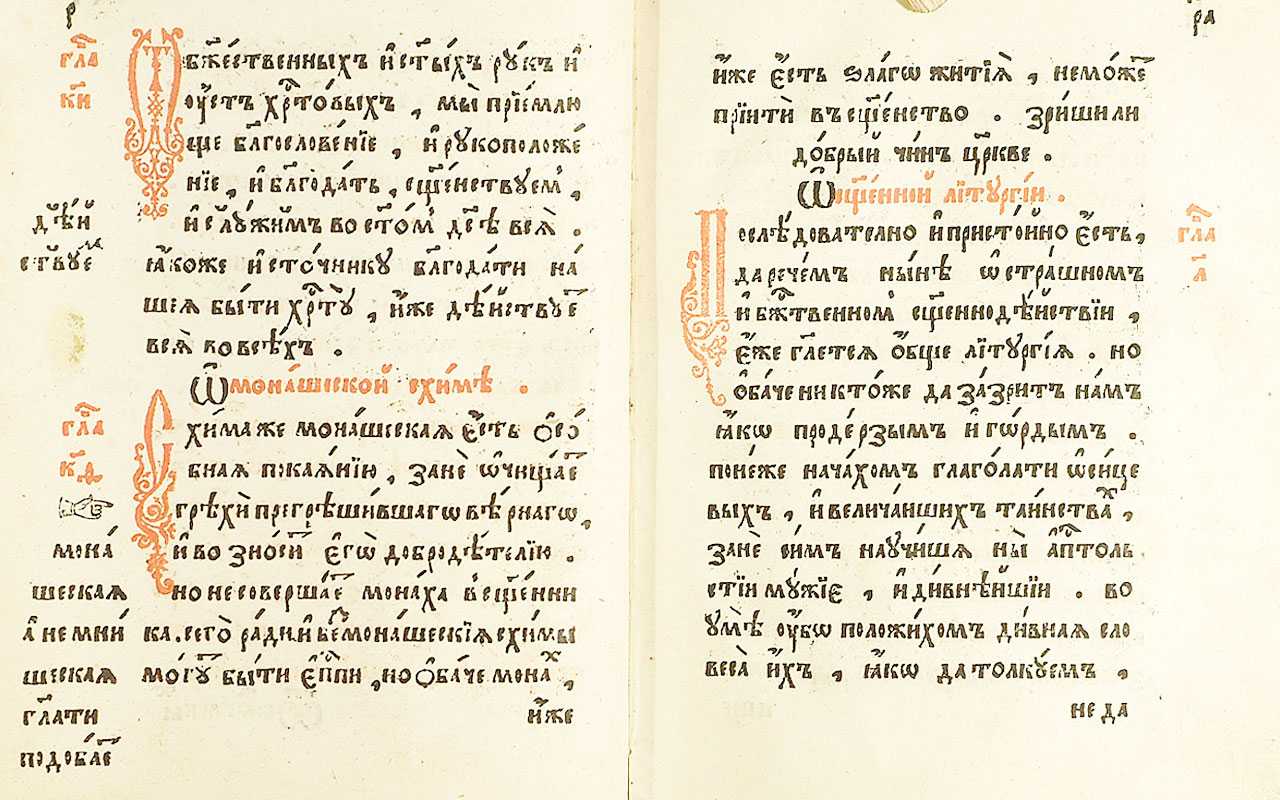 р
гл҃а
к҃и
Ѿ бж҃ественныхъ и҆ ст҃ыхъ рꙋкъ и҆
ѹ҆стъ хрⷭ҇товыхъ , мы̀ прїе́млю
ще блⷭ҇гослове́нїе , и҆ рꙋкоположе́
нїе , и҆ бл҃года́ть , сщ҃е́нствꙋем̾ ,
и҆ слꙋ́жимъ во ст҃о́м̾ дс҃ѣ всѧ̀ .
ꙗ҆́коже и҆сто́чникꙋ бл҃года́ти на́
шеѧ бы́ти хрⷭ҇тꙋ̀ , и҆́же дѣ́йствꙋе
всѧ̀ во всѣ́хъ .
дѣ́й
ствꙋе
Ѡ҆ мона́шеской схи́мѣ .
гл҃а
к҃ѳ
Схи́маже мона́шескаѧ є҆́сть ѻ҆со́
бнаѧ покаѧ́нїю , занѐ ѡ҆чища́е
грѣхѝ прегрѣши́вшагѡ вѣ́рнагѡ ,
и҆ во зно́сѝ є҆гѡ̀ добродѣ́телїю .
но не соверша́е мона́ха в̾сщ҃е́нни
ка . сегѡ̀ ра́ди и҆ бе́ мона́шескїѧ схи́мы
мо́гꙋ бы́ти є҆пⷭ҇пи , но ѻ҆ба́че мона́х ,
и҆́же
мона́
шескаѧ
а҆ не мни́
шескаѧ
гл҃ати
подоба́е
ра
и҆́же є҆́сть ѕла́гѡ житїѧ̀ , немо́же
прїитѝ въ сщ҃е́нство . зри́ши ли
до́брый чи́нъ цр҃кве .
Ѡ҆ сщ҃е́нной лїтꙋргі́и .
гл҃а
а҃
Послѣ́дователно и҆ присто́йно є҆́сть ,
да рече́мъ ны́нѣ ѡ҆ стра́шномъ
и҆ бжⷭ҇твенномъ сщ҃еннодѣ́йствїи ,
є҆́же гл҃етсѧ ѻ҆́бще лїтꙋргі́ѧ . но
ѻ҆ба́че никто́же да за́зритъ на́мъ
ꙗ҆́кѡ проде́рзымъ и҆ гѡ́рдымъ .
поне́же нача́хомъ глаго́лати ѡ҆ сице
вы́хъ , и҆ велича́йшихъ таи́нства́х ,
занѐ си́мъ наꙋчи́шѧ ны̀ а҆пⷭ҇толь
стїи мꙋ́жїе , и҆ диⷡнѣ́йшїи . во
ꙋ҆мѣ̀ ѹ҆́бѡ положи́хомъ ди́внаѧ сло
веса̀ и҆́хъ , ꙗ҆́кѡ да толкꙋ́емъ ,
не да